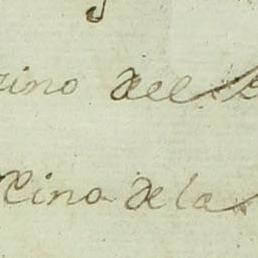 ino del
cina dela